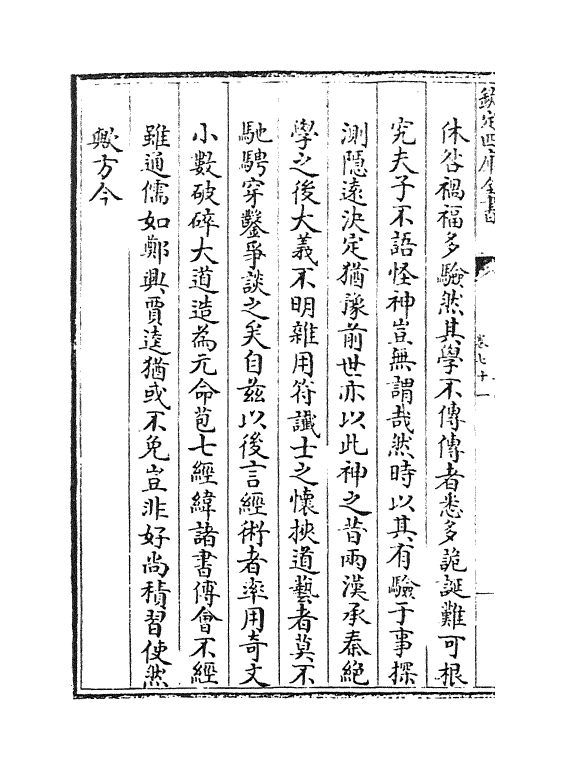 欽定四庫全書
卷七十一
休咎禍福多驗然其學不傳傳者悉多詭誕難可根
究夫子不語怪神豈無謂哉然時以其有驗于事探
測隱遠決定猶豫前世亦以此神之昔兩漢承秦絶
學之後大義不明雜用符讖士之懷挾道藝者莫不
馳騁穿鑿爭談之矣自茲以後言經術者率用奇文
小數破碎大道造為元命苞七經緯諸書傅會不經
雖通儒如鄭興賈逵猶或不免豈非好尚積習使然
歟方今